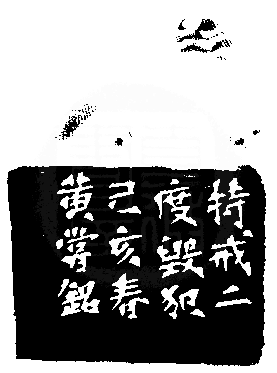 持戒二
度毀犯
己亥春
黄銘